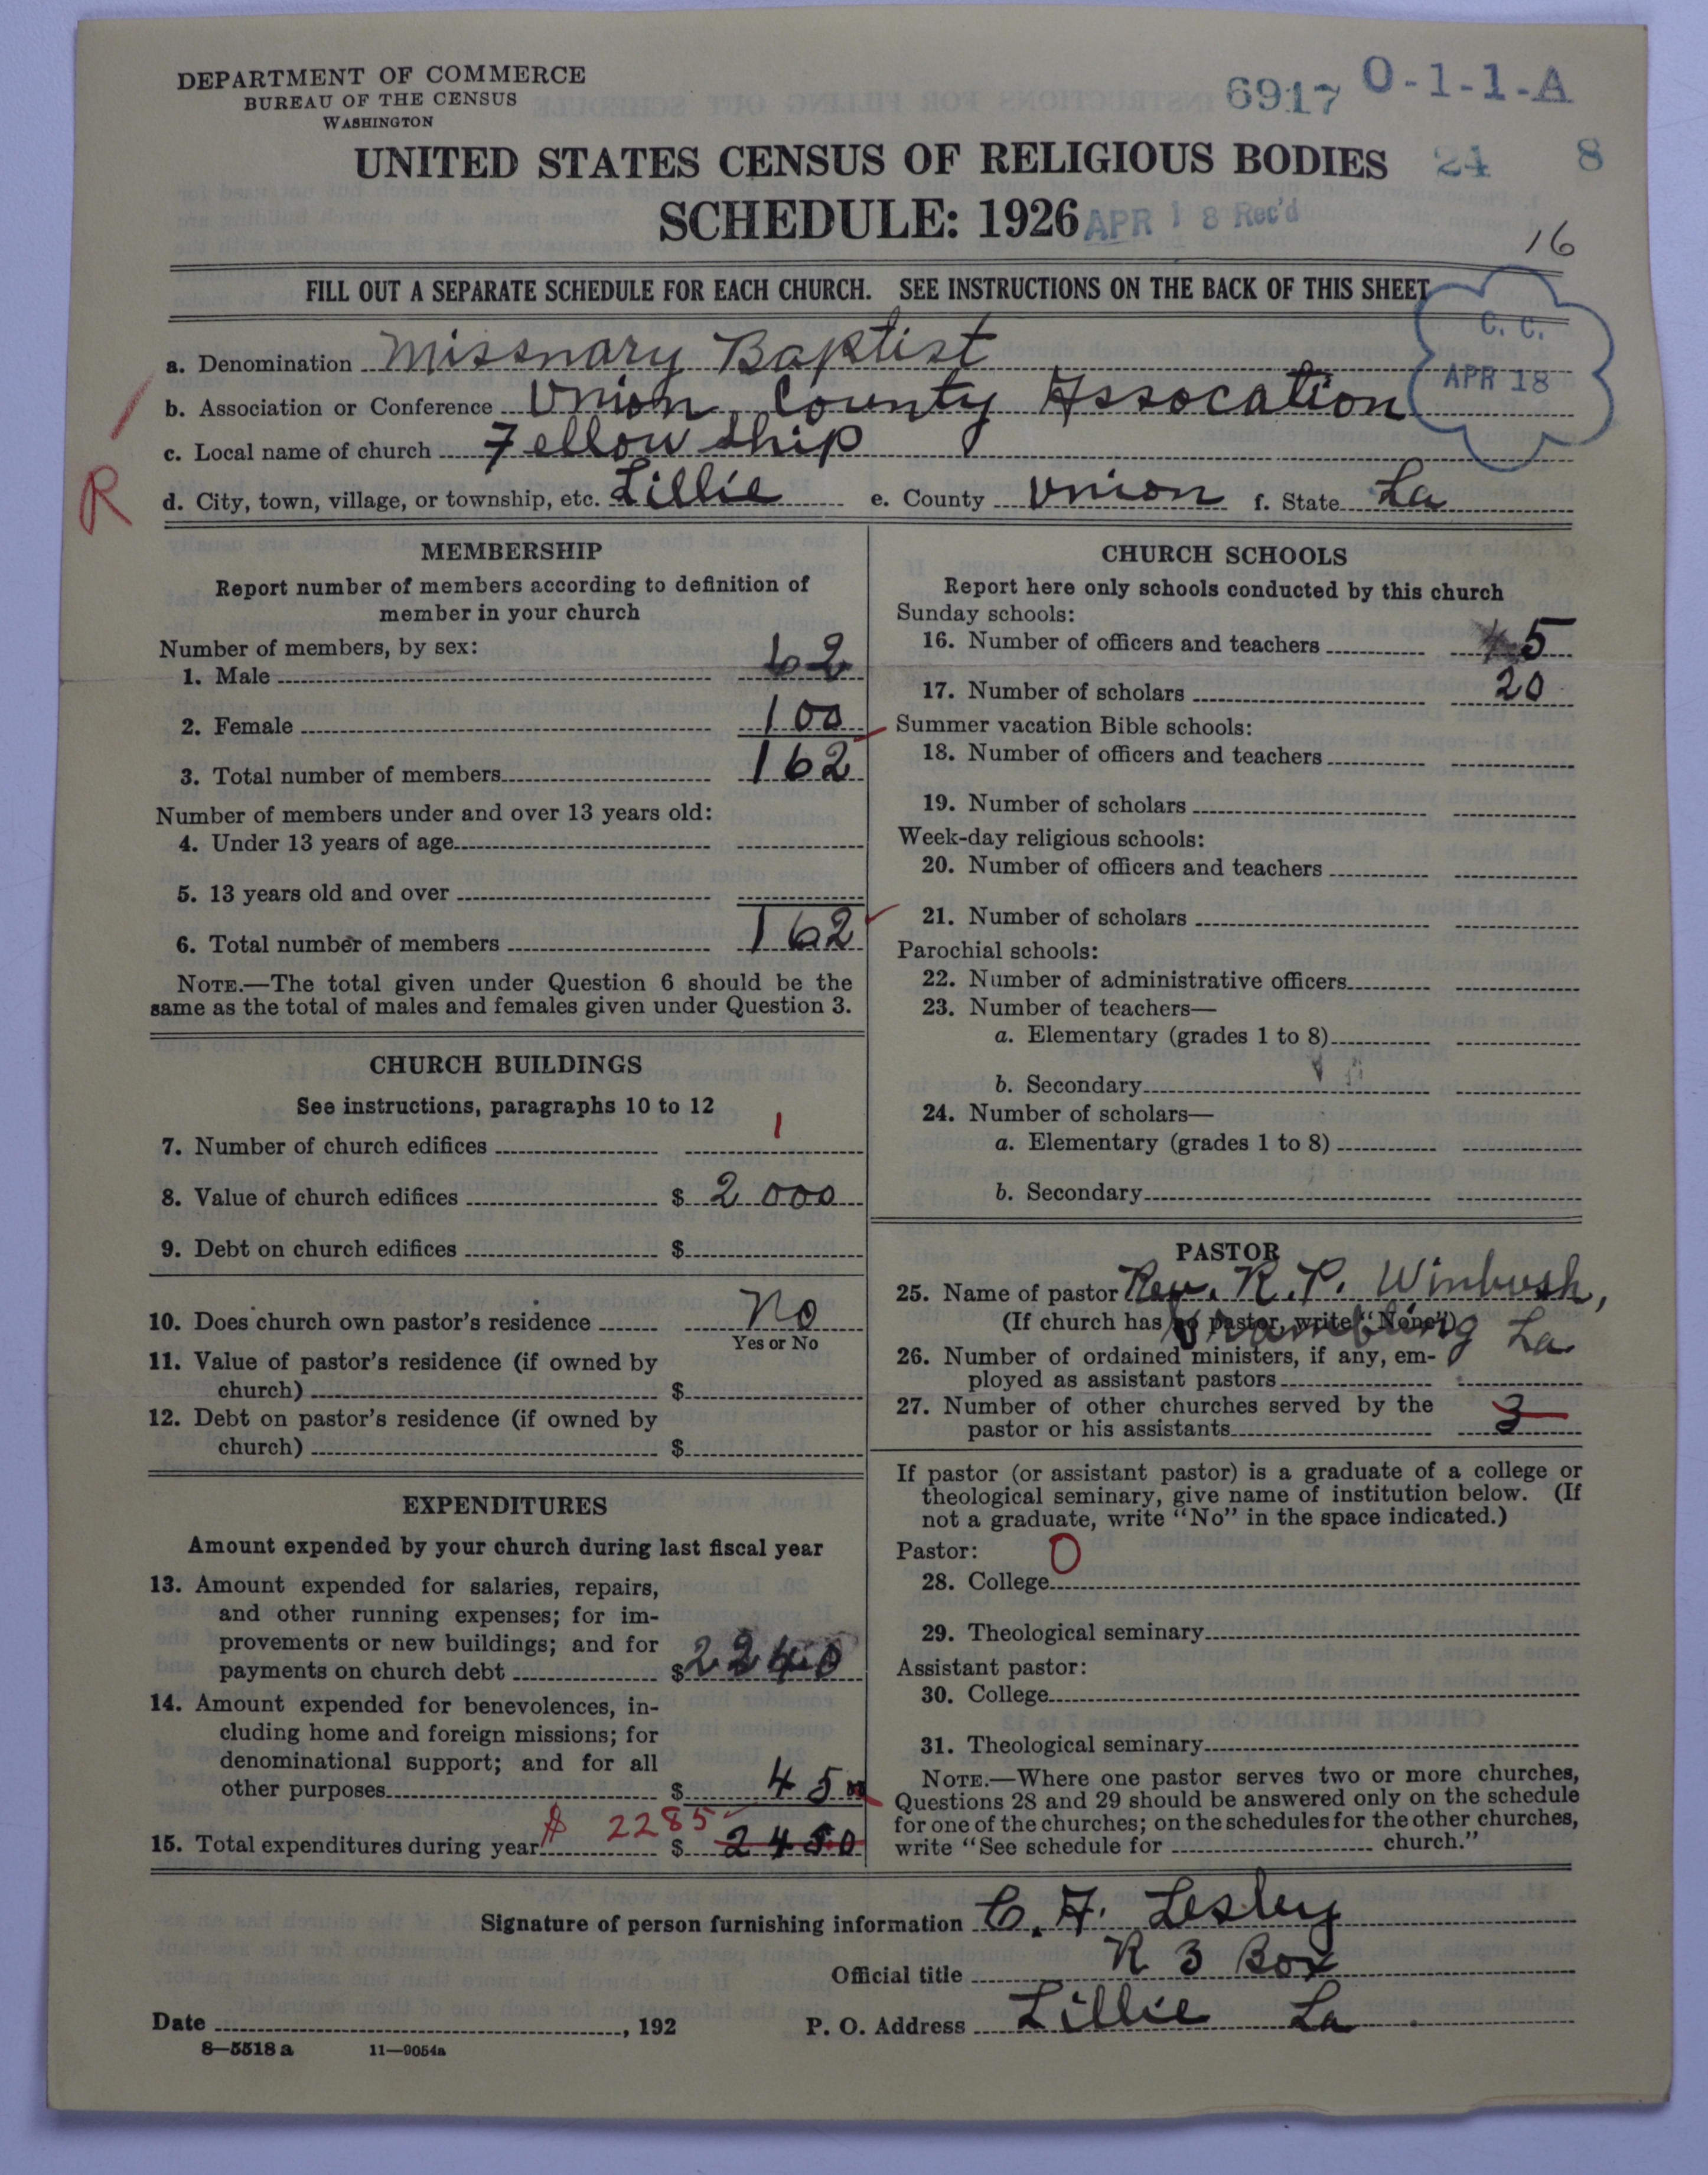 DEPARTMENT OF COMMERCE
BUREAU OF THE CENSUS
WASHINGTON
6917 O-1-1-A
UNITED STATES CENSUS OF RELIGIOUS BODIES
24 8
SCHEDULE: 1926
APR 18 Rec'd
16
FILL OUT A SEPARATE SCHEDULE FOR EACH CHURCH. SEE INSTRUCTIONS ON THE BACK OF THIS SHEET
C. C.
APR 18
a. Denomination Missnary Baptist
b. Association or Conference Union County Assocation
c. Local name of church Fellowship
R
d. City, town, village, or township, etc. Lillie e. County Union f. State La
MEMBERSHIP
Report number of members according to definition of
member in your church
Number of members, by sex:
1. Male 62
2. Female 100
3. Total number of members 162
Number of members under and over 13 years old:
4. Under 13 years of age
5. 13 years old and over
6. Total number of members 162
NOTE.—The total given under Question 6 should be the
same as the total of males and females given under Question 3.
CHURCH BUILDINGS
See instructions, paragraphs 10 to 12
7. Number of church edifices 1
8. Value of church edifices $ 2000
9. Debt on church edifices $
10. Does church own pastor's residence No
Yes or No
11. Value of pastor's residence (if owned by
church) $
12. Debt on pastor's residence (if owned by
church) $
EXPENDITURES
Amount expended by your church during last fiscal year
13. Amount expended for salaries, repairs,
and other running expenses; for im-
provements or new buildings; and for
payments on church debt $ 2240
14. Amount expended for benevolences, in-
cluding home and foreign missions; for
denominational support; and for all
other purposes $ 45
$ 2285
15. Total expenditures during year $ 2450
CHURCH SCHOOLS
Report here only schools conducted by this church
Sunday schools:
16. Number of officers and teachers 5
17. Number of scholars 20
Summer vacation Bible schools:
18. Number of officers and teachers
19. Number of scholars
Week-day religious schools:
20. Number of officers and teachers
21. Number of scholars
Parochial schools:
22. Number of administrative officers
23. Number of teachers—
a. Elementary (grades 1 to 8)
b. Secondary
24. Number of scholars—
a. Elementary (grades 1 to 8)
b. Secondary
PASTOR
25. Name of pastor Rev. R. P. Winbush,
(If church has no pastor, write "None") La
26. Number of ordained ministers, if any, em-
ployed as assistant pastors
27. Number of other churches served by the
pastor or his assistants 3
If pastor (or assistant pastor) is a graduate of a college or
theological seminary, give name of institution below. (If
not a graduate, write "No" in the space indicated.)
Pastor:
28. College O
29. Theological seminary
Assistant pastor:
30. College
31. Theological seminary
NOTE.—Where one pastor serves two or more churches,
Questions 28 and 29 should be answered only on the schedule
for one of the churches; on the schedules for the other churches,
write "See schedule for church."
Signature of person furnishing information C. F. Lesley
Official title R 3 Box
Date , 192 P. O. Address Lillie La
8—5518 a 11—9054a